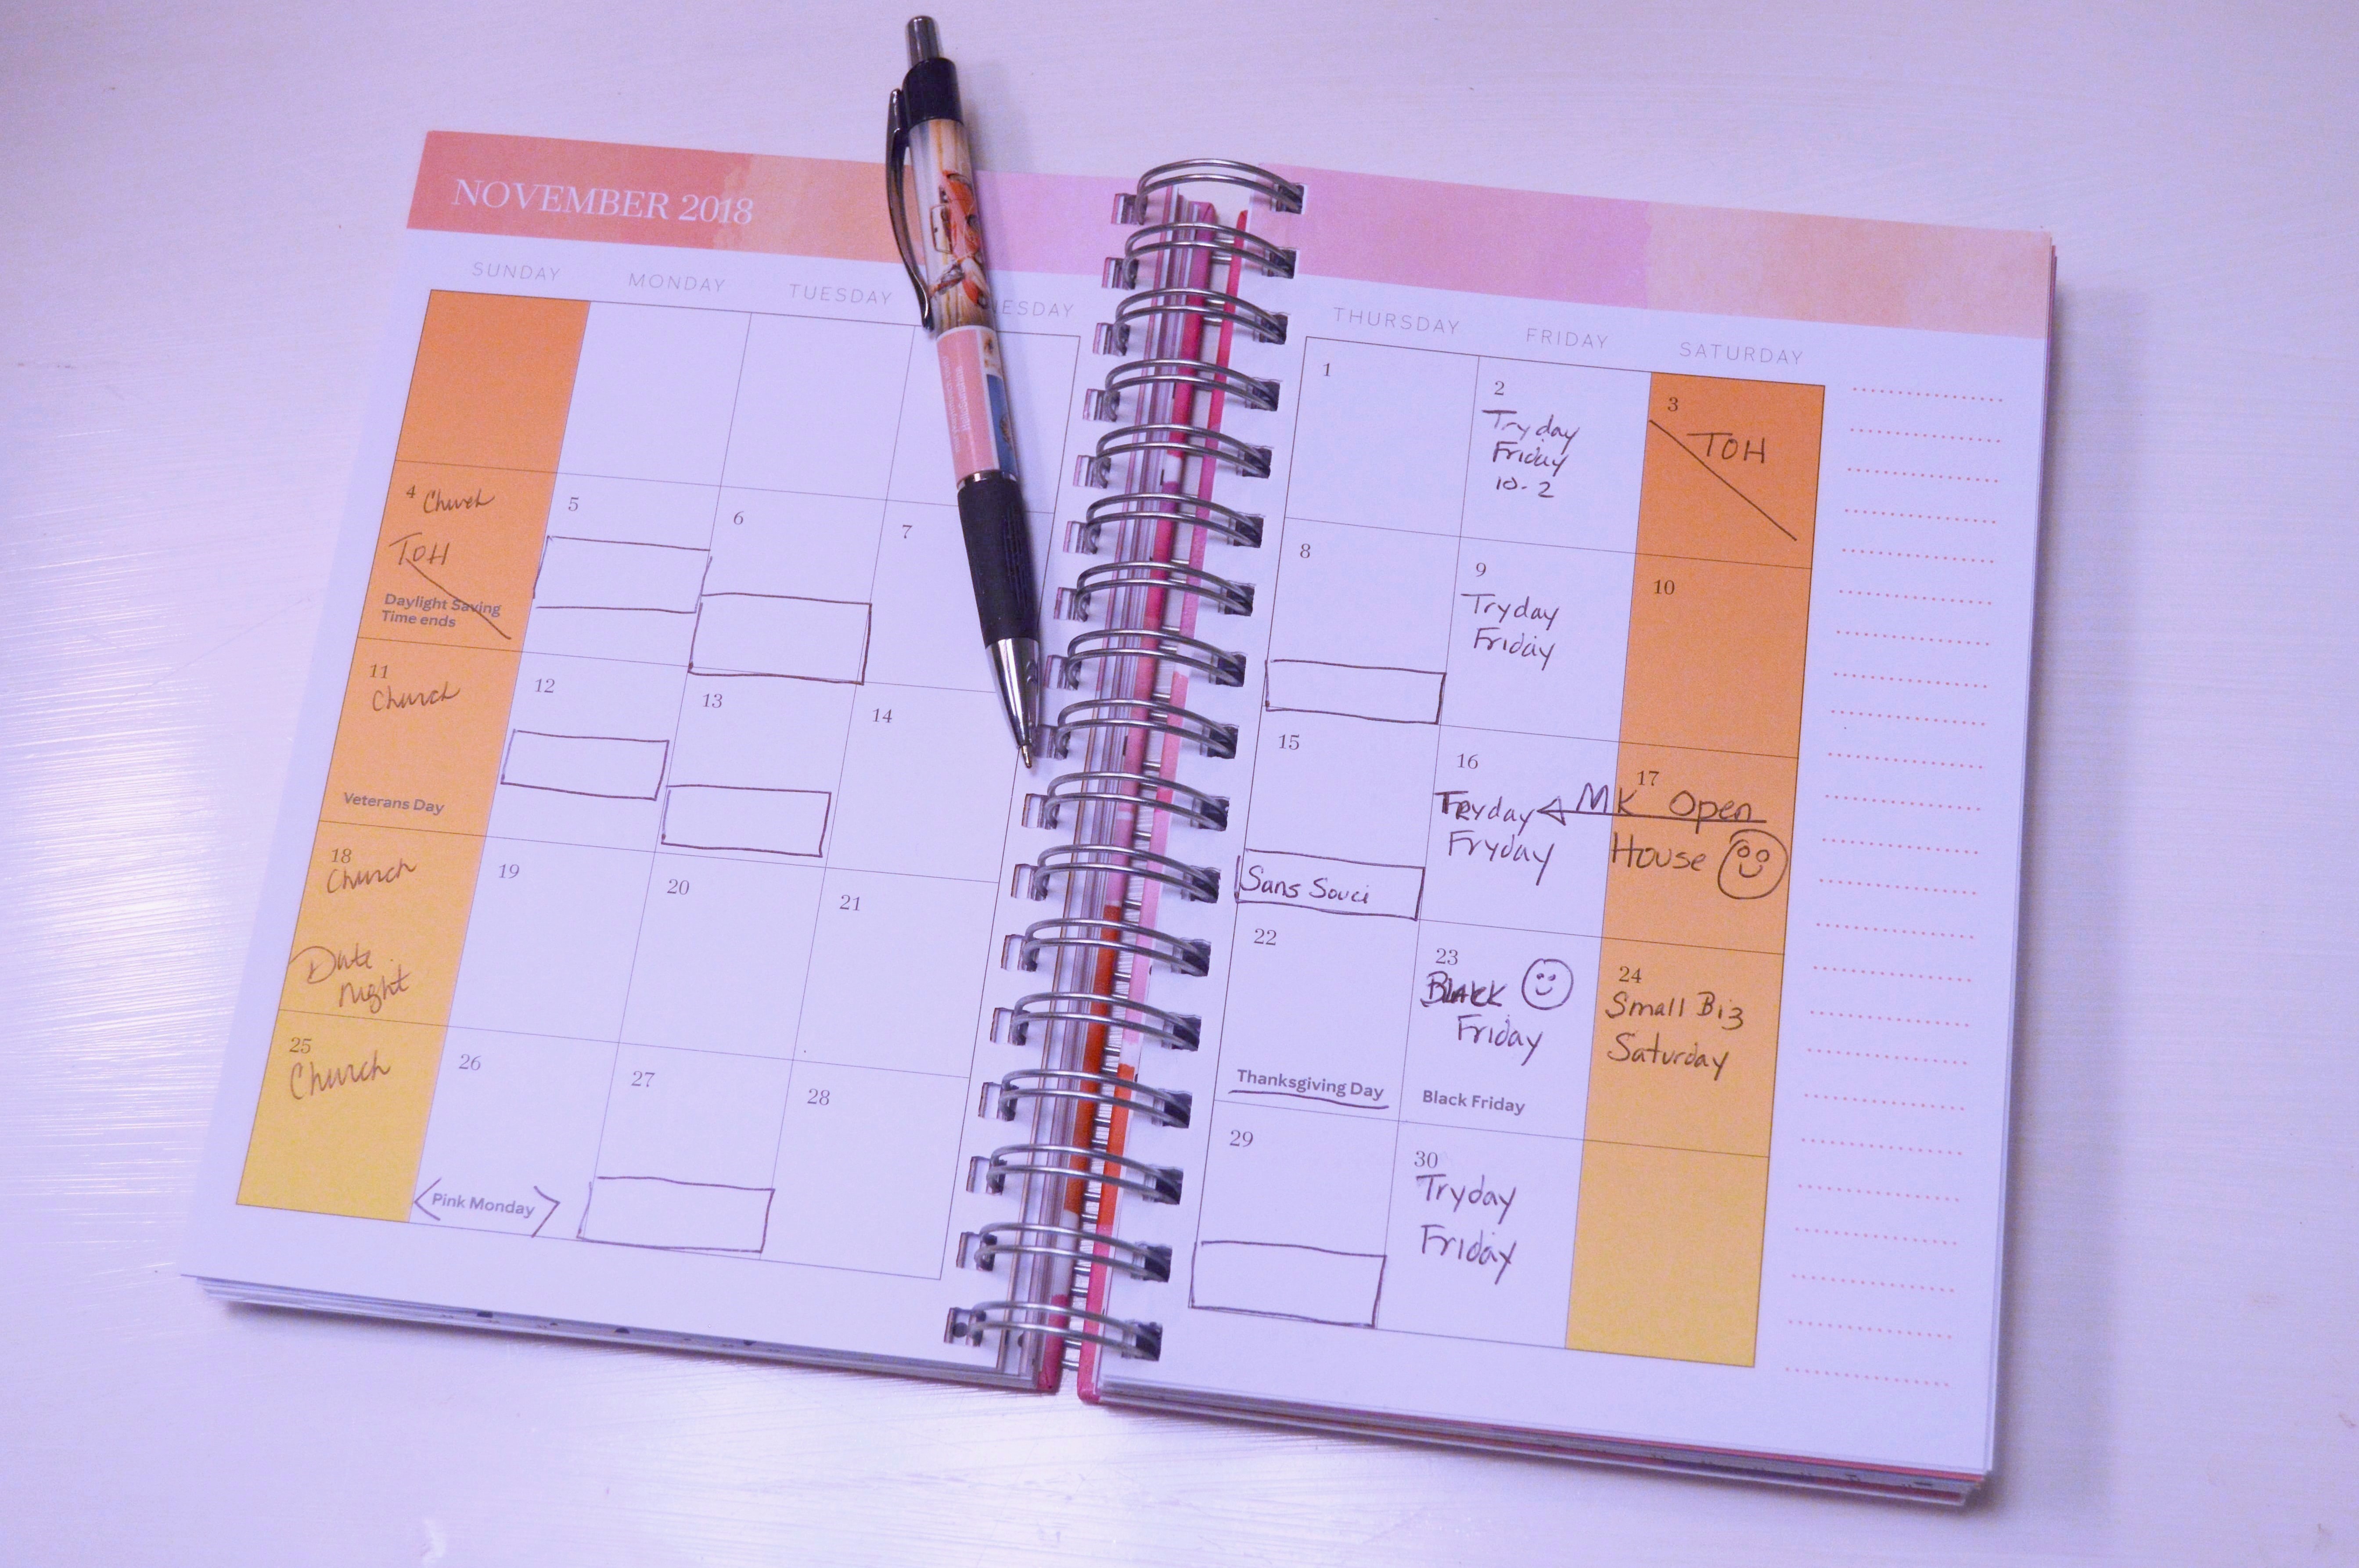 NOVEMBER 2018
SUNDAY MONDAY TUESDAY ESDAY THURSDAY FRIDAY SATURDAY
1
2
Tryday
Friday
10-2
3
TOH
4 Church
TOH
Daylight Saving
Time ends
5
6
7
8
9
Tryday
Friday
10
11
Church
Veterans Day
12
13
14
15
Sans Souci
16
Tryday
Fryday
17
MK Open
House
18
Church
Date
night
19
20
21
22
Thanksgiving Day
23
Black
Friday
Black Friday
24
Small Biz
Saturday
25
Church
26
Pink Monday
27
28
29
30
Tryday
Friday